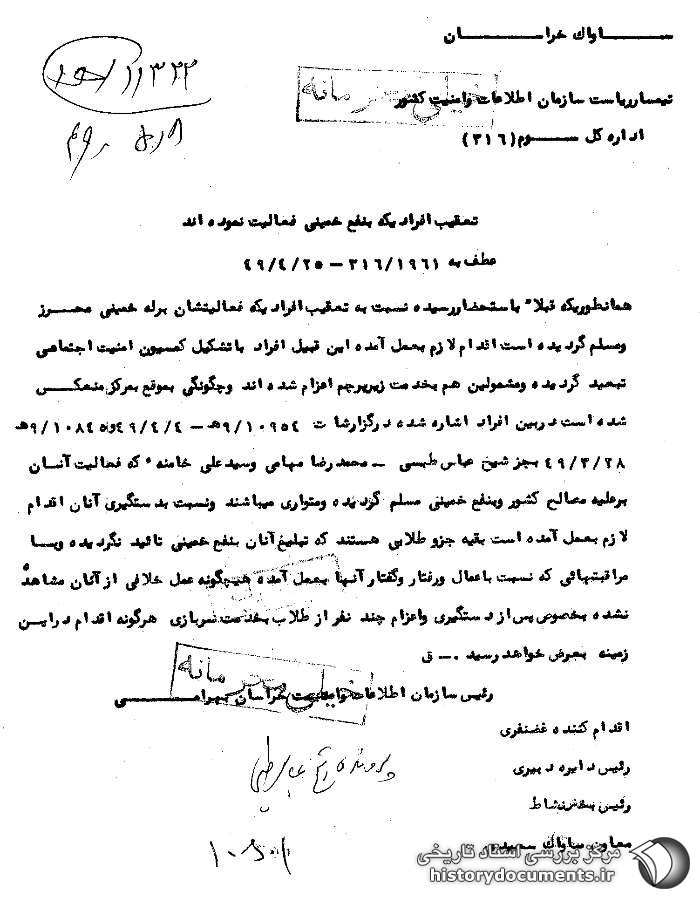 ساواك خراسان
۱۱۳۲۲
خیلی محرمانه
تیمسار ریاست سازمان اطلاعات وامنیت کشور
اداره کل سوم (۳۱٦)
تعقیب افرادیکه بنفع خمینی فعالیت نموده اند
عطف به ۳۱٦/۱۹٦۱ – ۴۹/۴/۲۵
همانطوریکه قبلا" باستحضار رسیده نسبت به تعقیب افرادیکه فعالیتشان برله خمینی محرز
ومسلم گردیده است اقدام لازم بعمل آمده این قبیل افراد باتشکیل کمسیون امنیت اجتماعی
تبعید گردیده ومشمولین هم بخدمت زیرپرچم اعزام شده اند وچگونگی بموقع بمرکز منعکس
شده است دربین افراد اشاره شده درگزارشات ۹/۱۰۹۵۴هـ – ۴۹/۴/۴ و ۹/۱۰۸۴۵هـ
۴۹/۳/۲۸ بجز شیخ عباس طبسی – محمدرضا مهامی وسیدعلی خامنه ٔ که فعالیت آنسان
برعلیه مصالح کشور وبنفع خمینی مسلم گردیده ومتواری میباشند ونسبت بدستگیری آنان اقدام
لازم بعمل آمده است بقیه جزو طلابی هستند که تبلیغ آنان بنفع خمینی تائید نگردیده وبسا
مراقبتهائی که نسبت باعمال ورفتار وگفتار آنها بعمل آمده هیچگونه عمل خلافی از آنان مشاهده
نشده بخصوص پس از دستگیری واعزام چند نفر از طلاب بخدمت سربازی هرگونه اقدام دراین
زمینه بعرض خواهد رسید .– ق
خیلی محرمانه
رئیس سازمان اطلاعات وامنیت خراسان بهرامی
اقدام کننده غضنفری
رئیس دایره دبیری
رئیس بخش نشاط
معاون ساواك
پرونده
مرکز بررسی اسناد تاریخی
historydocuments.ir